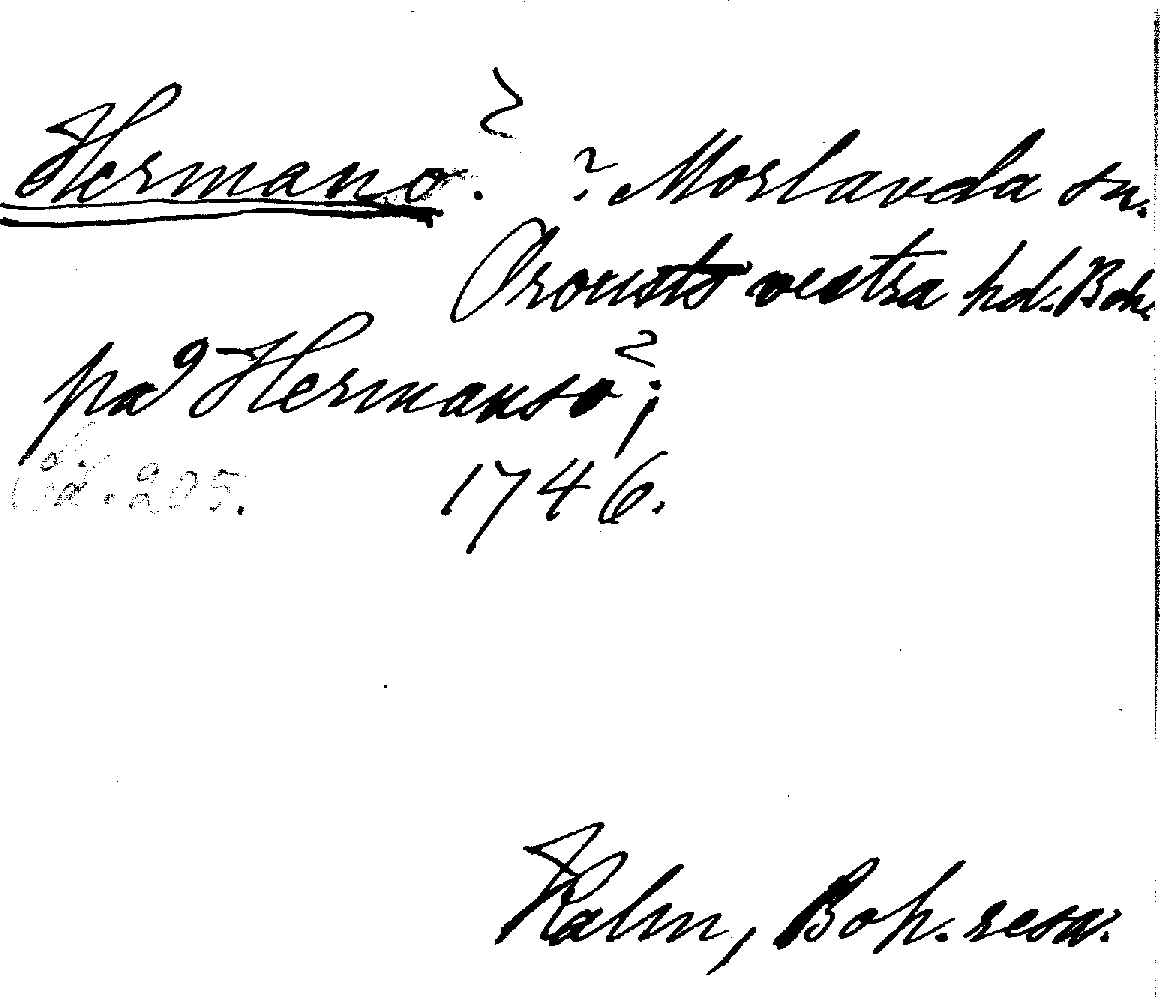 Hermanö. ? ? Morlanda sn.
Orousts vestra hd. Boh.
på Hermansö ?;
Ed. 205. 1746.
Kalm, Boh. resa.